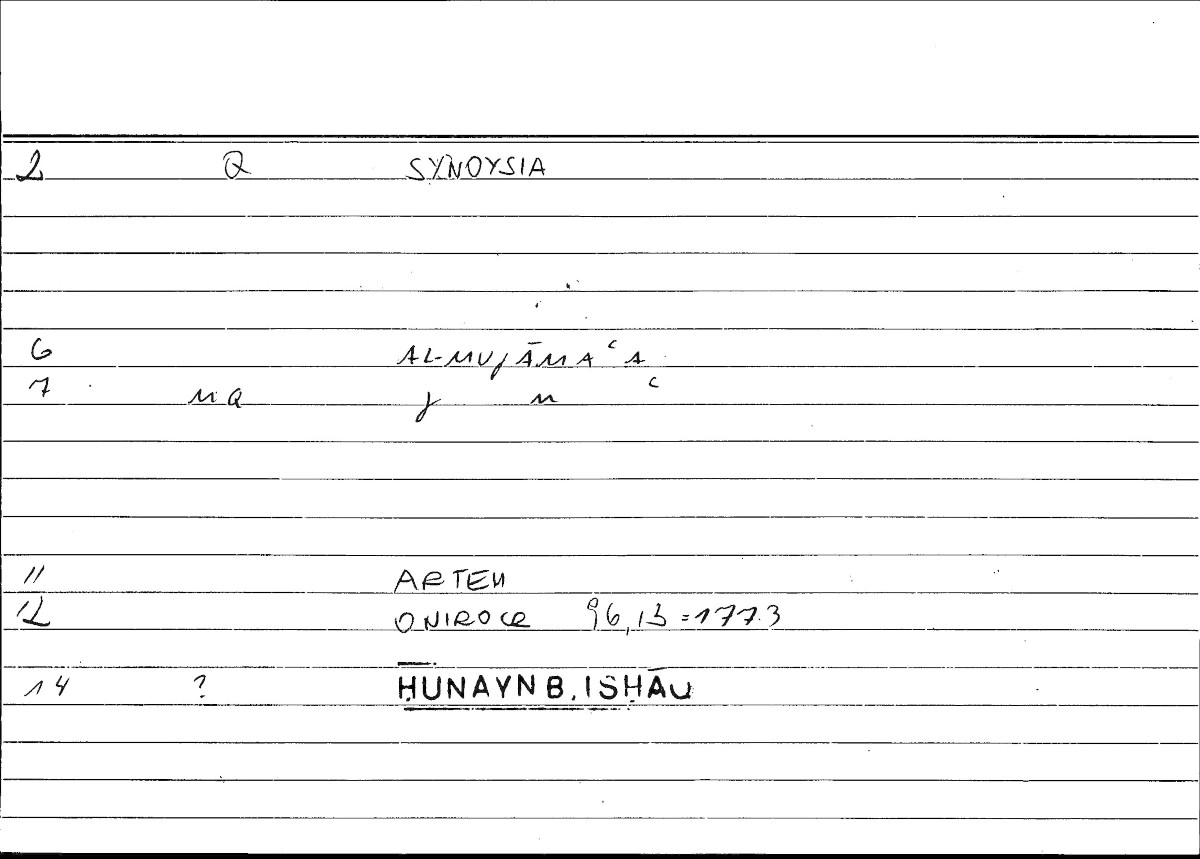 2 Q SYNOYSIA
6 AL-MUJĀMAʿA
7 MQ J M ʿ
11 ARTEM
12 ONIROCR 96,13=177.3
14 ? ḤUNAYN B. ISḤĀQ